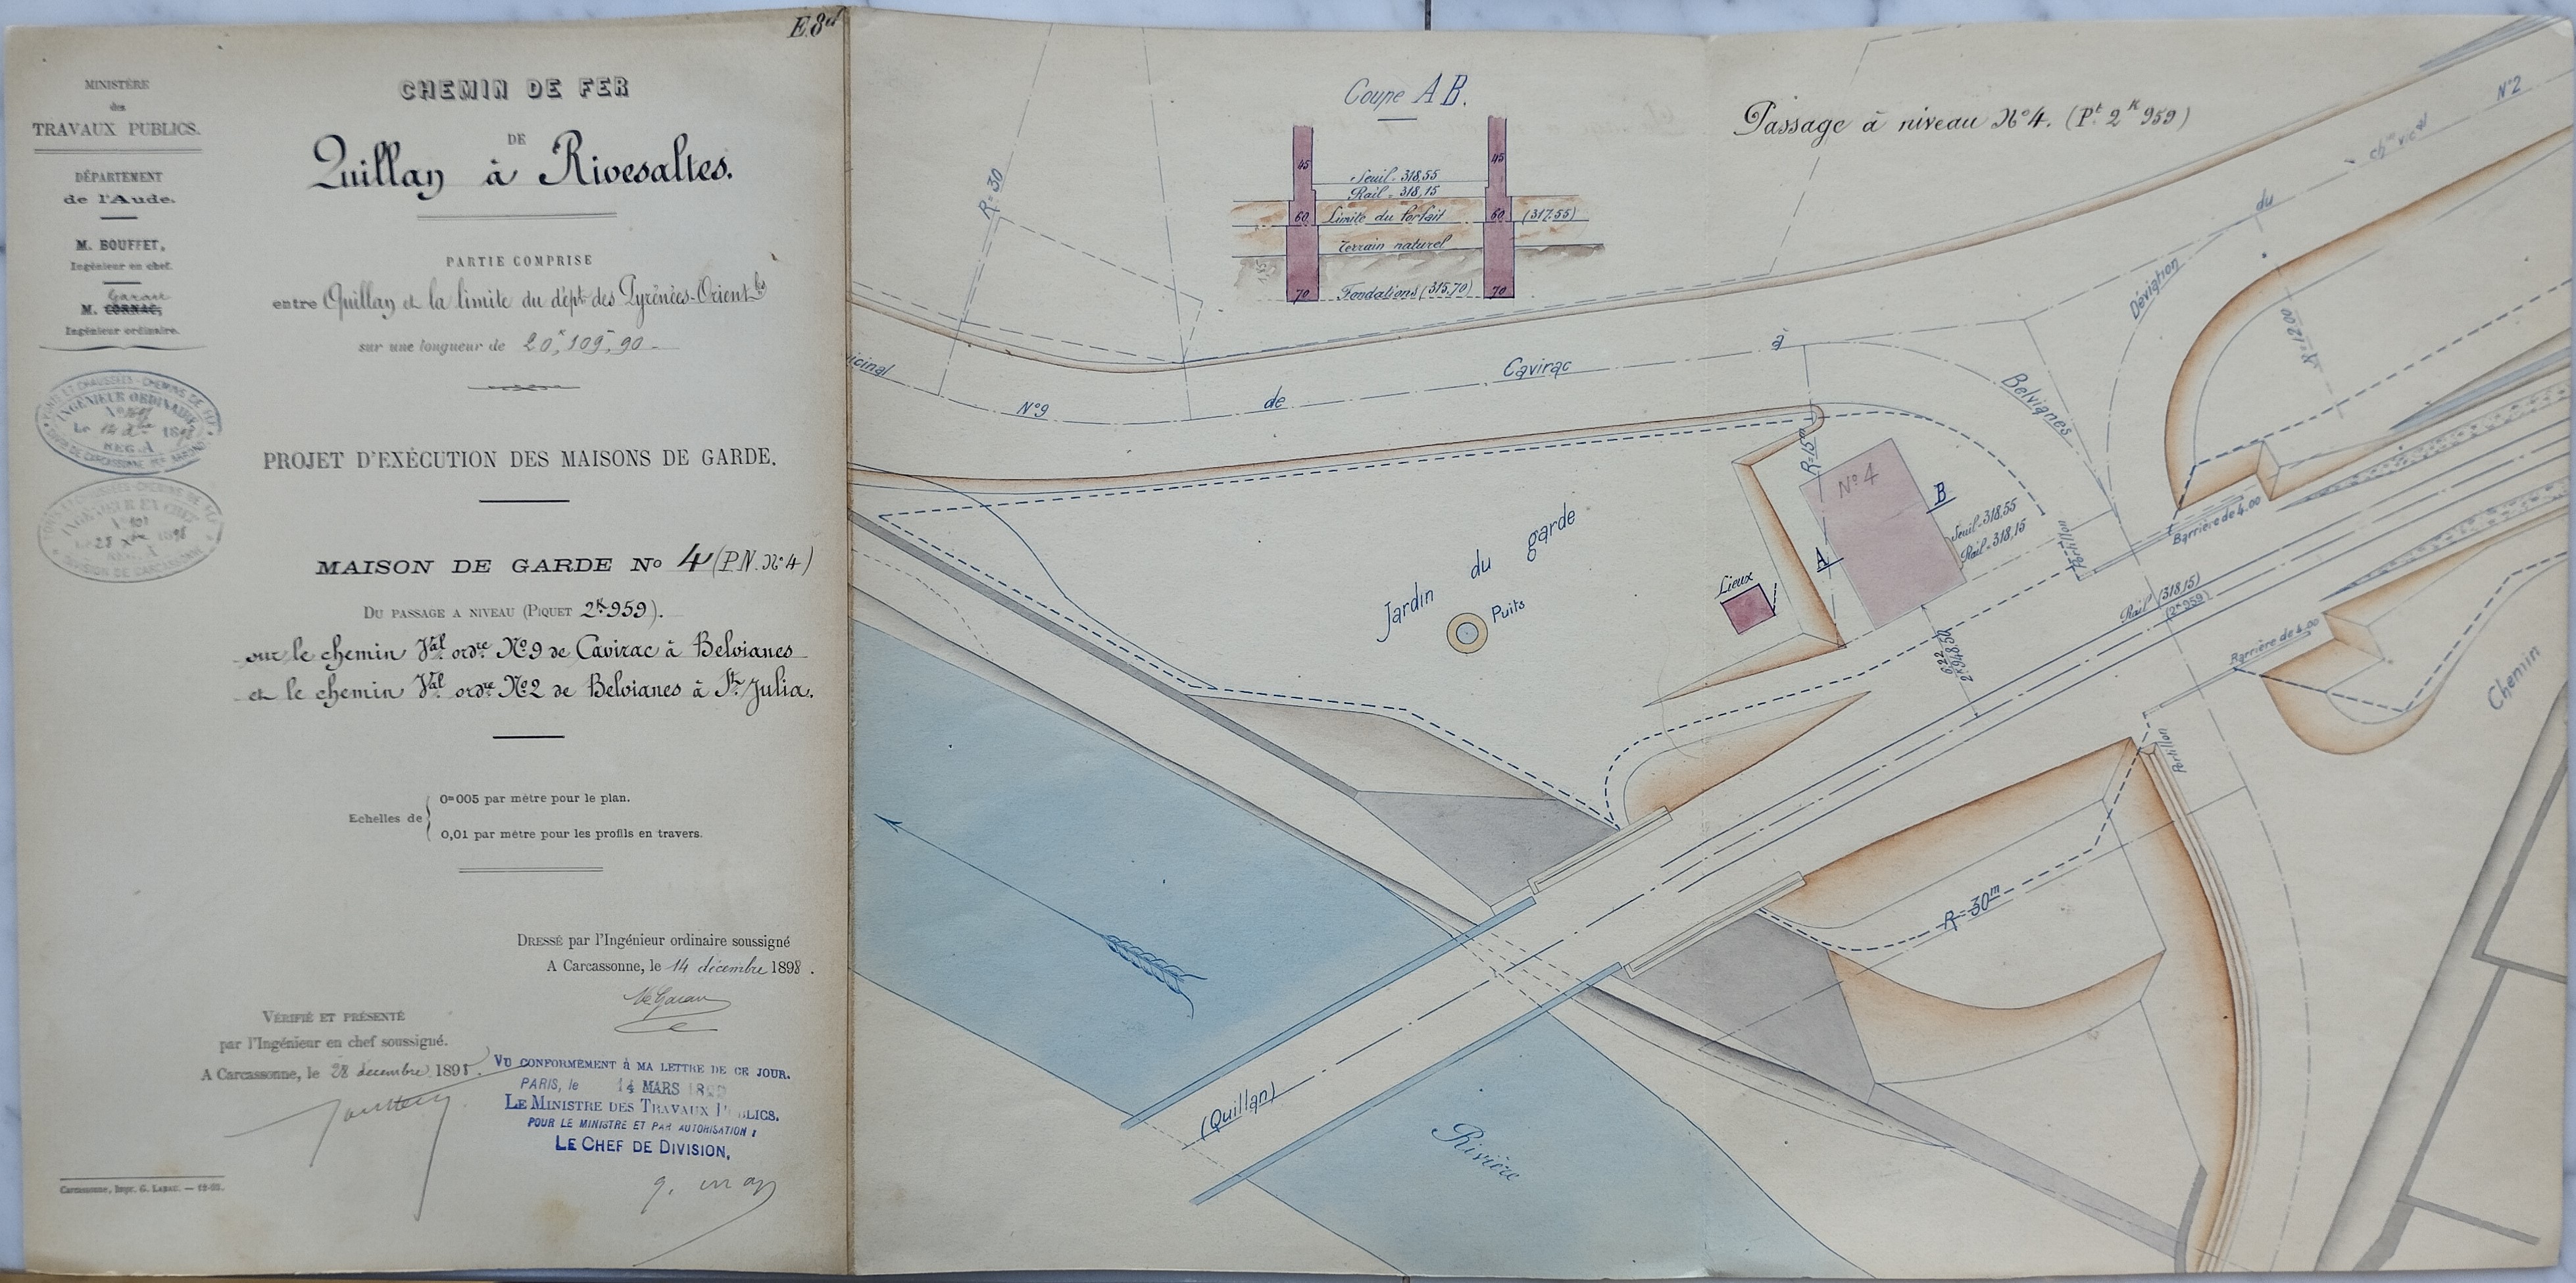 E.8d
MINISTÈRE
des
TRAVAUX PUBLICS.
DÉPARTEMENT
de l'Aude.
M. BOUFFET,
Ingénieur en chef.
Garau
M. CORNAC,
Ingénieur ordinaire.
INGÉNIEUR ORDINAIRE
Le 14 Xbre 1898
REG. A
INGÉNIEUR EN CHEF
Le 28 Xbre 1898
REG. A
DIVISION DE CARCASSONNE
CHEMIN DE FER
DE
Quillan à Rivesaltes.
PARTIE COMPRISE
entre Quillan et la limite du dépt des Pyrénées-Orientles
sur une longueur de 20k,109m,90
PROJET D'EXÉCUTION DES MAISONS DE GARDE.
MAISON DE GARDE No 4 (P.N. No 4)
DU PASSAGE A NIVEAU (PIQUET 2K959).
sur le chemin Val ordre No 9 de Cavirac à Belvianes
et le chemin Val ordre No 2 de Belvianes à St Julia.
Echelles de
0m005 par mètre pour le plan.
0,01 par mètre pour les profils en travers.
DRESSÉ par l'Ingénieur ordinaire soussigné
A Carcassonne, le 14 décembre 1898.
VÉRIFIÉ ET PRÉSENTÉ
par l'Ingénieur en chef soussigné.
A Carcassonne, le 28 décembre 1898.
VU CONFORMÉMENT à MA LETTRE DE CE JOUR.
PARIS, le 14 MARS
LE MINISTRE DES TRAVAUX PUBLICS.
POUR LE MINISTRE ET PAR AUTORISATION :
LE CHEF DE DIVISION,
Carcassonne, Impr. G. LABAU.
Coupe A B.
45
45
Seuil = 318,55
Rail = 318,15
60
Limite du forfait
60
(317.55)
Terrain naturel
70
Fondations (315.70)
70
Passage à niveau No 4. (Pt 2K 959)
R = 30
icinal
No 9
de
Cavirac
à
Belvianes
Déviation
du
chin vical
No 2
R = 12.00
R = 15m
No 4
A
B
Seuil = 318.55
Rail = 318,15
Lieux
Jardin du garde
Puits
Portillon
Barrière de 4.00
Rail (318,15)
(2K959)
Barrière de 4.00
Portillon
Chemin
6.22
2k948.50
R = 30m
(Quillan)
Rivière